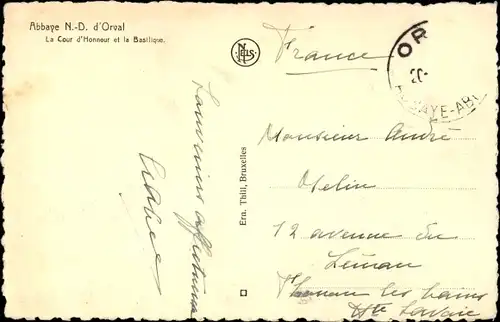 Abbaye N.-D. d'Orval
La Cour d'Honneur et la Basilique.
NELS
Ern. Thill, Bruxelles
affectueux
France
OR
20-
AYE-AB
Monsieur André
Melin
12 avenue du
Léman
Thonon les bains
Hte Savoie